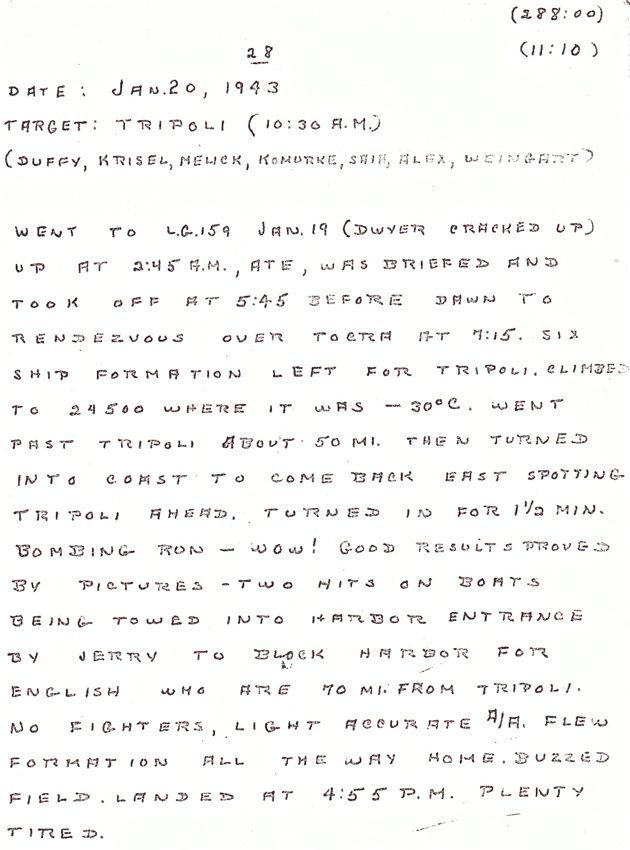 (288:00)
28 (11:10)
DATE: JAN.20, 1943
TARGET: TRIPOLI (10:30 A.M.)
(DUFFY, KRISEL, MELICK, KOMURKE, SHIA, ALEX, WEINGART)
WENT TO L.G.159 JAN.19 (DWYER CRACKED UP)
UP AT 2:45 A.M., ATE, WAS BRIEFED AND
TOOK OFF AT 5:45 BEFORE DAWN TO
RENDEZVOUS OVER TOCRA AT 7:15. SIX
SHIP FORMATION LEFT FOR TRIPOLI. CLIMBED
TO 24500 WHERE IT WAS -30°C. WENT
PAST TRIPOLI ABOUT 50 MI. THEN TURNED
INTO COAST TO COME BACK EAST SPOTTING
TRIPOLI AHEAD. TURNED IN FOR 1½ MIN.
BOMBING RUN - WOW! GOOD RESULTS PROVED
BY PICTURES - TWO HITS ON BOATS
BEING TOWED INTO HARBOR ENTRANCE
BY JERRY TO BLOCK HARBOR FOR
ENGLISH WHO ARE 70 MI. FROM TRIPOLI.
NO FIGHTERS, LIGHT ACCURATE A/A. FLEW
FORMATION ALL THE WAY HOME. BUZZED
FIELD. LANDED AT 4:55 P.M. PLENTY
TIRED.